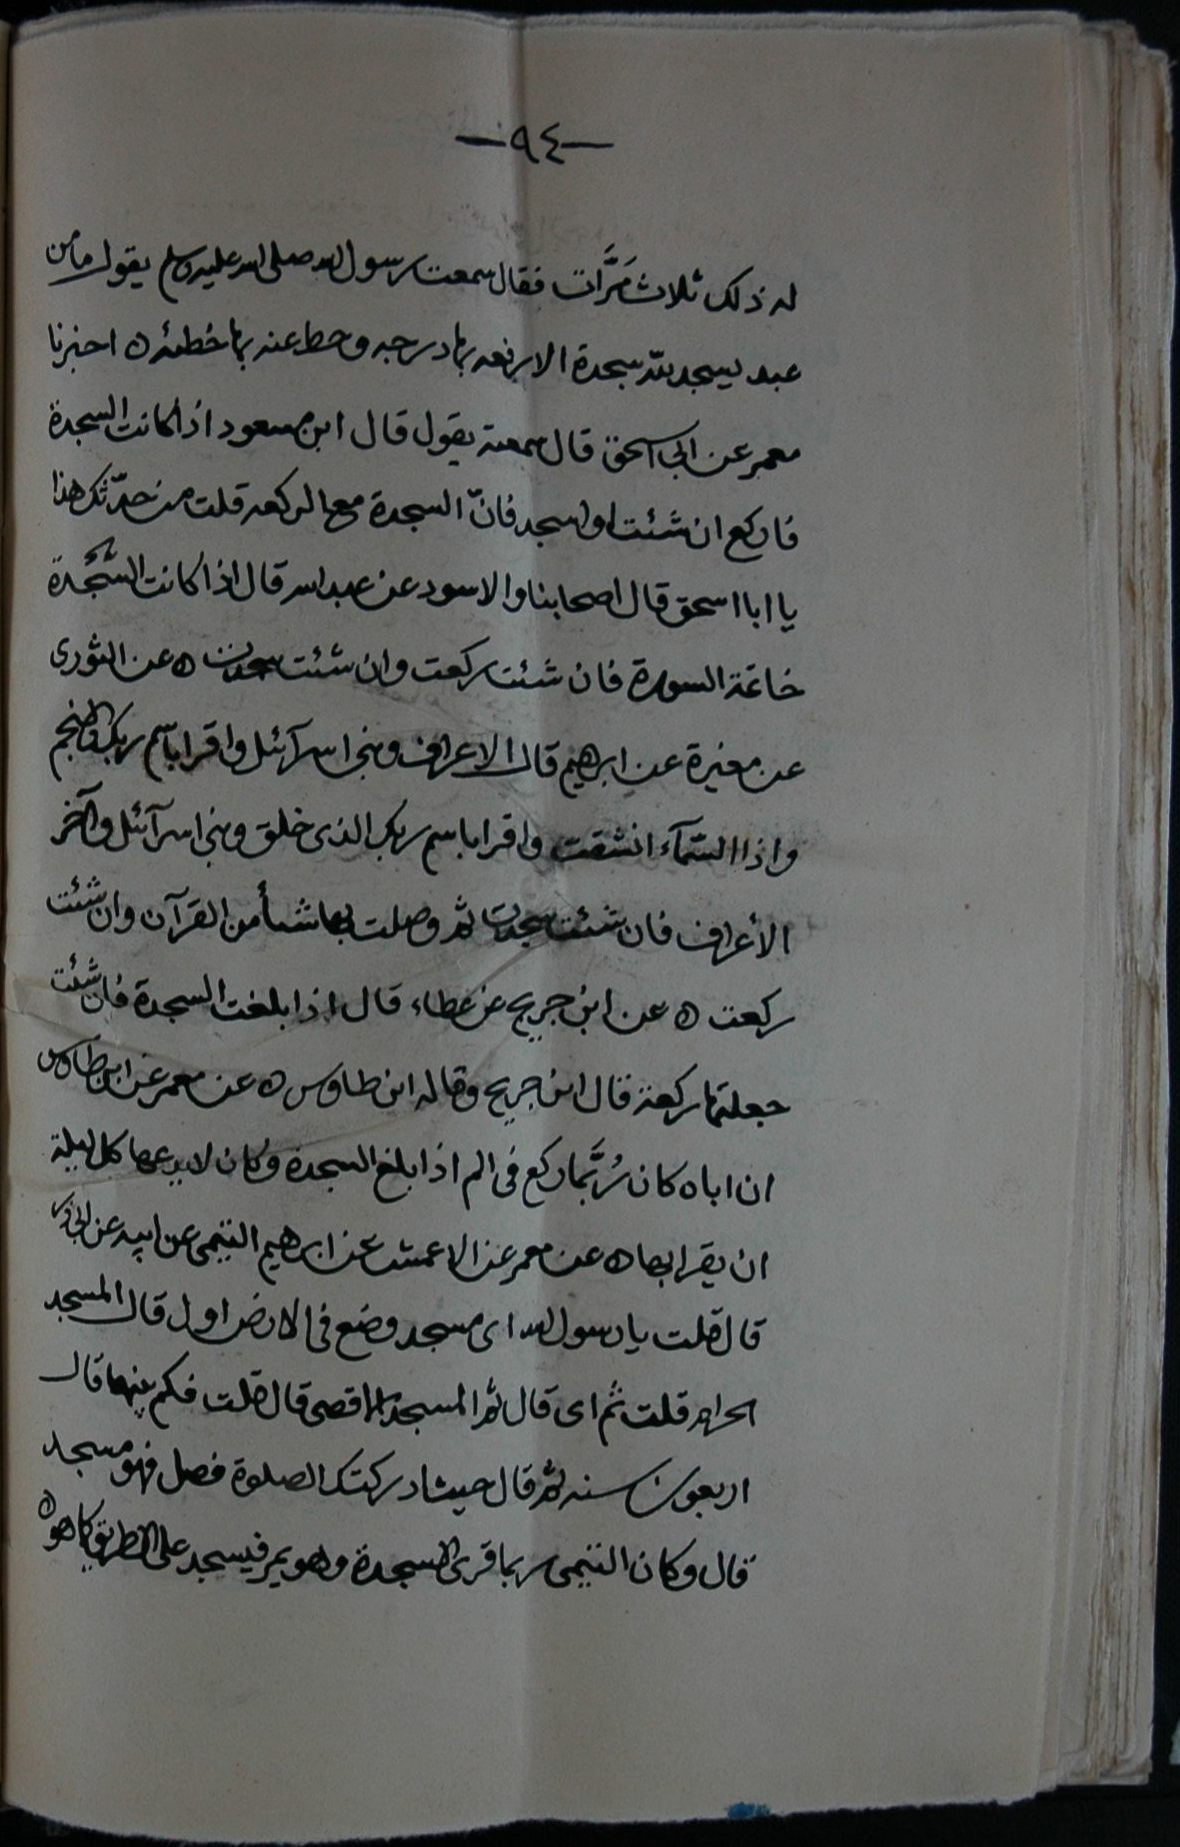 —٩٤—
له ذلك ثلاث مَرَّات فقال سمعت رسول الله صلى الله عليه وسلم يقول ما من
عبد يسجد لله سجدة الا رفعه بها درجه وحط عنه بها خطئه ٥ اخبرنا
معمر عن ابى اسحق قال سمعته يقول قال ابن مسعود اذا كانت السجدة
فاركع ان شئت او اسجد فانّ السجدة مع الركعه قلت من حدّثك هذا
يا ابا اسحق قال اصحابنا والاسود عن عبد الله قال اذا كانت السَّجْدة
خاتمة السورة فان شئت ركعت وان شئت سجدت ٥ عن الثورى
عن مغيرة عن ابرهيم قال الاعراف وبنى اسرآئل واقرا باسم ربك والنجم
واذا السّمآء انشقت واقرا باسم ربك الذى خلق وبنى اسرآئل وآخر
الأعراف فان شئت سجدت ثم وصلت بها شيأ من القرآن وان شئت
ركعت ٥ عن ابن جريج عن عطاء قال اذا بلغت السجدة فان شئت
جعلتها ركعة قال ابن جريج وقاله ابن طاوس ٥ عن معمر عن ابن طاوس
ان اباه كان رُبَّما ركع فى الم اذا بلغ السجدة وكان لا يدعها كل ليلة
ان يقرا بها ٥ عن معمر عن الاعمش عن ابرهيم التيمى عن ابيه عن ابى ذر
قال قلت يا رسول الله اى مسجد وضع فى الارض اول قال المسجد
الحرام قلت ثم اى قال ثم المسجد الاقصى قال قلت فكم بينهما قال
اربعون سنه ثم قال حيث ادركتك الصلوة فصل فهو مسجد
قال وكان التيمى ربما قرى السجدة وهو يمر فيسجد على الطريق كما هو ٥